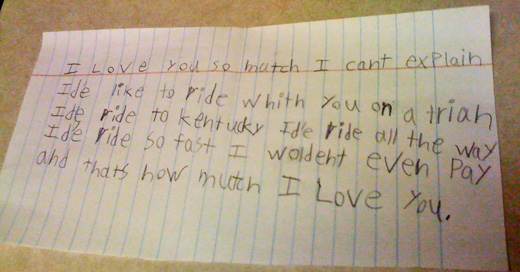 I Love you so mutch I cant explain
Ide like to ride whith you on a trian
Ide ride to kentucky Ide ride all the way
Ide ride so fast I woldent even pay
and thats how mutch I Love you.